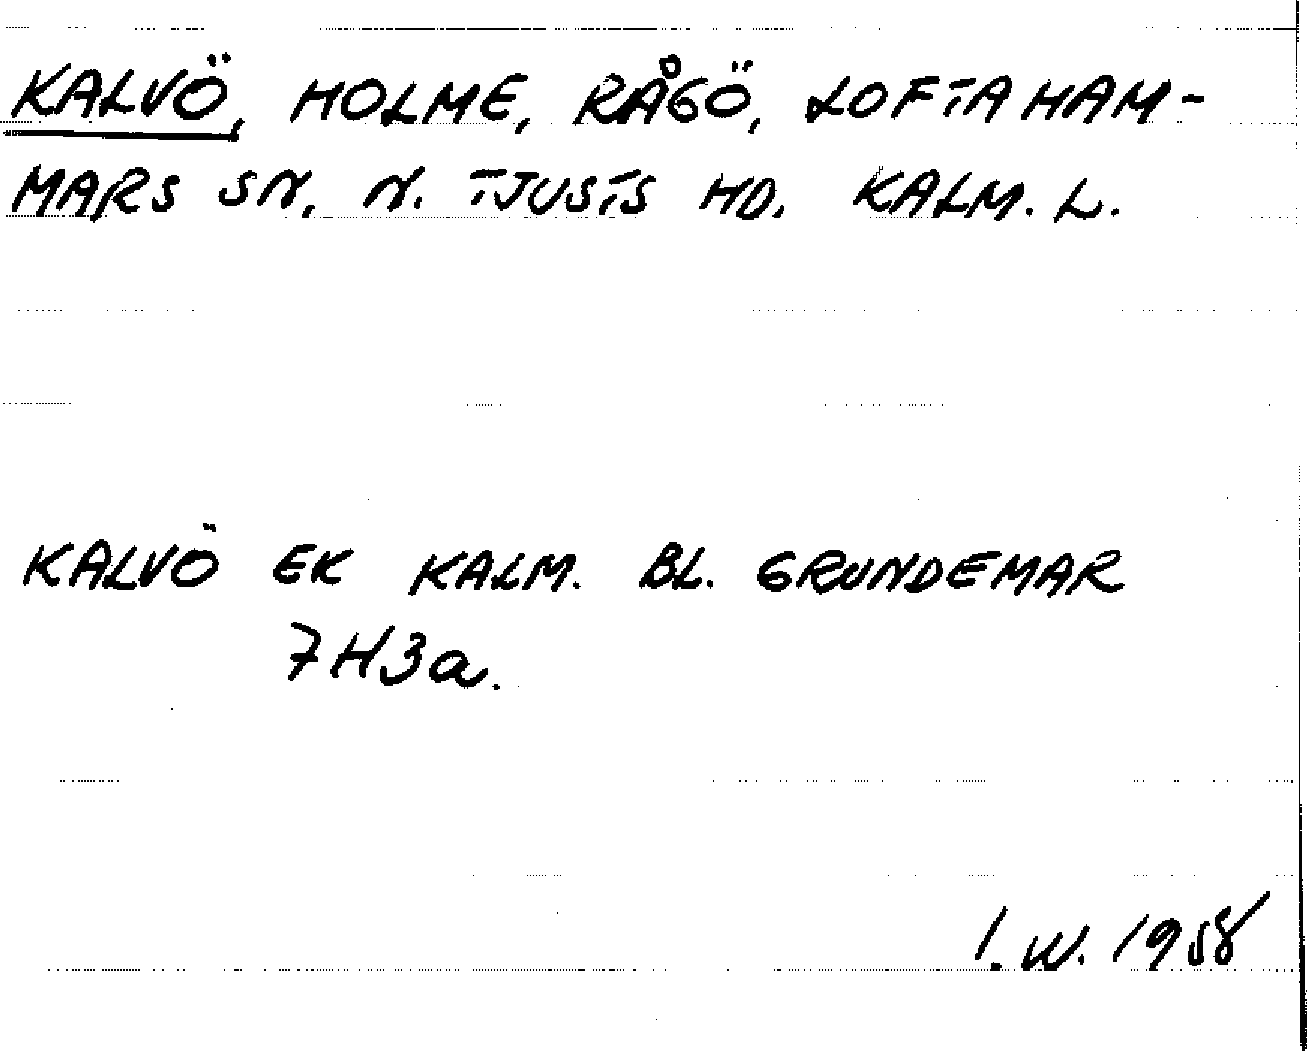 KALVÖ, HOLME, RÅGÖ, LOFTAHAM-
MARS SN, N. TJUSTS HD. KALM. L.
KALVÖ EK KALM. BL. GRUNDEMAR
7H3a.
I.W. 1958